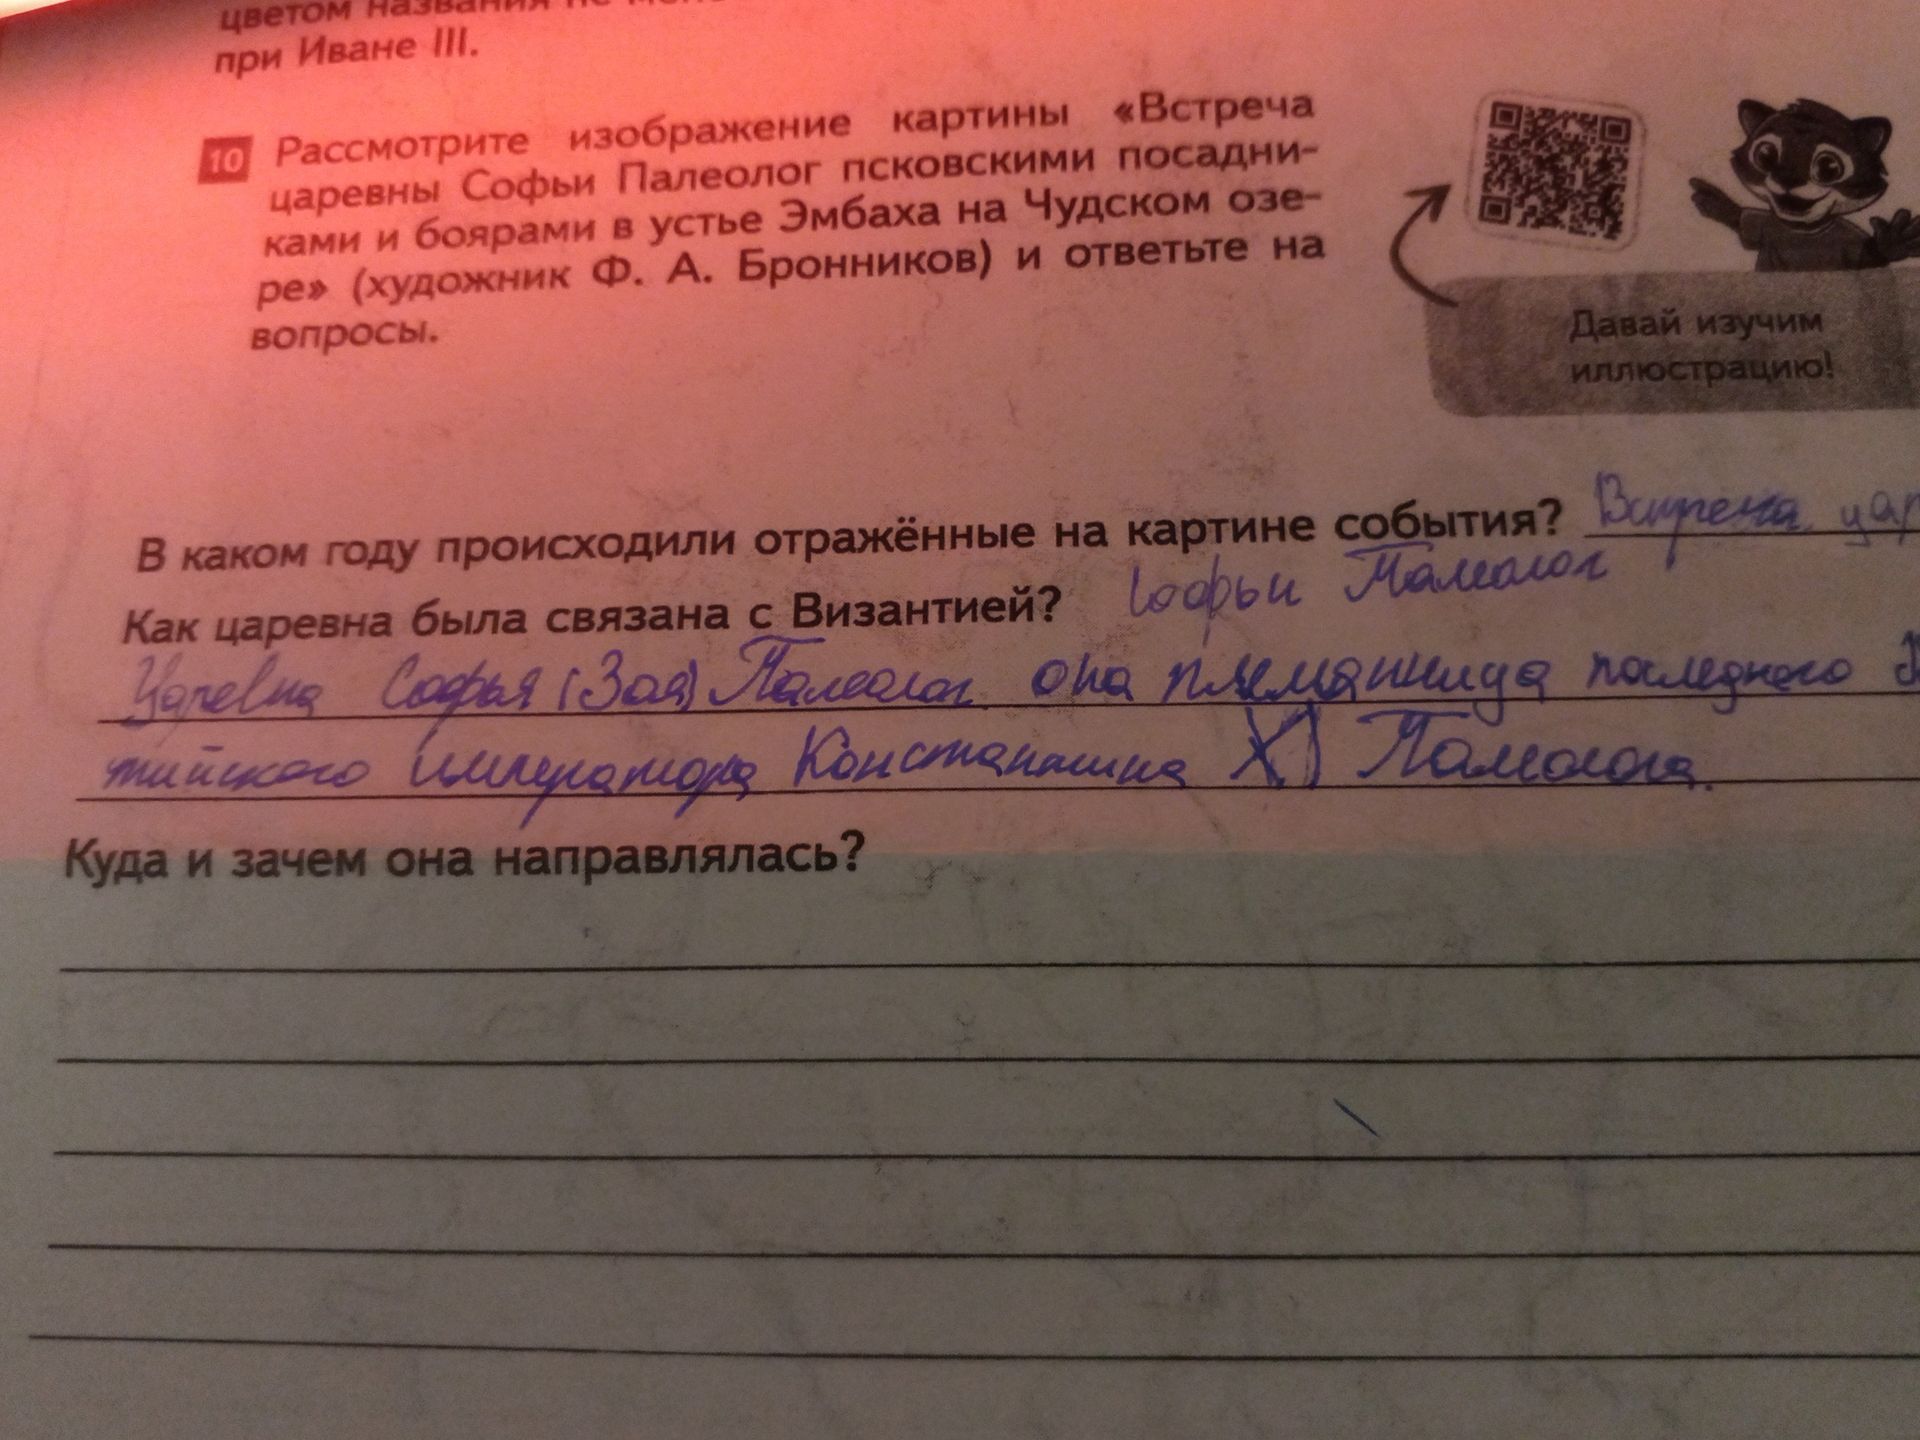 цветом названия не
при Иване III.
10 Рассмотрите изображение картины «Встреча
царевны Софьи Палеолог псковскими посадни-
ками и боярами в устье Эмбаха на Чудском озе-
ре» (художник Ф. А. Бронников) и ответьте на
вопросы.
Давай изучим
иллюстрацию!
В каком году происходили отражённые на картине события? Встреча цар
Софьи Палеолог
Как царевна была связана с Византией?
Царевна Софья (Зоя) Палеолог она племянница последнего
тийского императора Константина XI Палеолога.
Куда и зачем она направлялась?